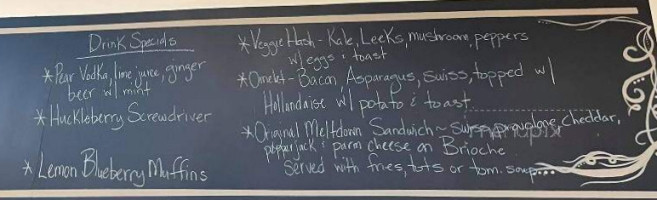 Drink Specials
* Pear Vodka, lime juice, ginger
beer w/ mint
* Huckleberry Screwdriver
* Lemon Blueberry Muffins
* Veggie Hash - Kale, Leeks, mushroom, peppers
w/ eggs & toast
* Omelet - Bacon, Asparagus, Swiss, topped w/
Hollandaise w/ potato & toast
* Original Meltdown Sandwich ~ Swiss, provolone, cheddar,
pepperjack & parm cheese on Brioche
Served with fries, tots or tom. soup